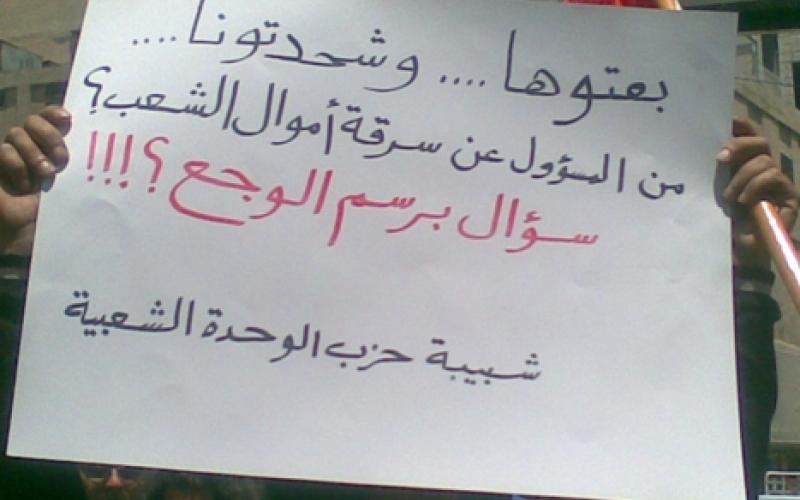 بعتوها .... وشحدتونا ....
من المسؤول عن سرقة أموال الشعب؟
سؤال برسم الوجع؟!!!
شبيبة حزب الوحدة الشعبية